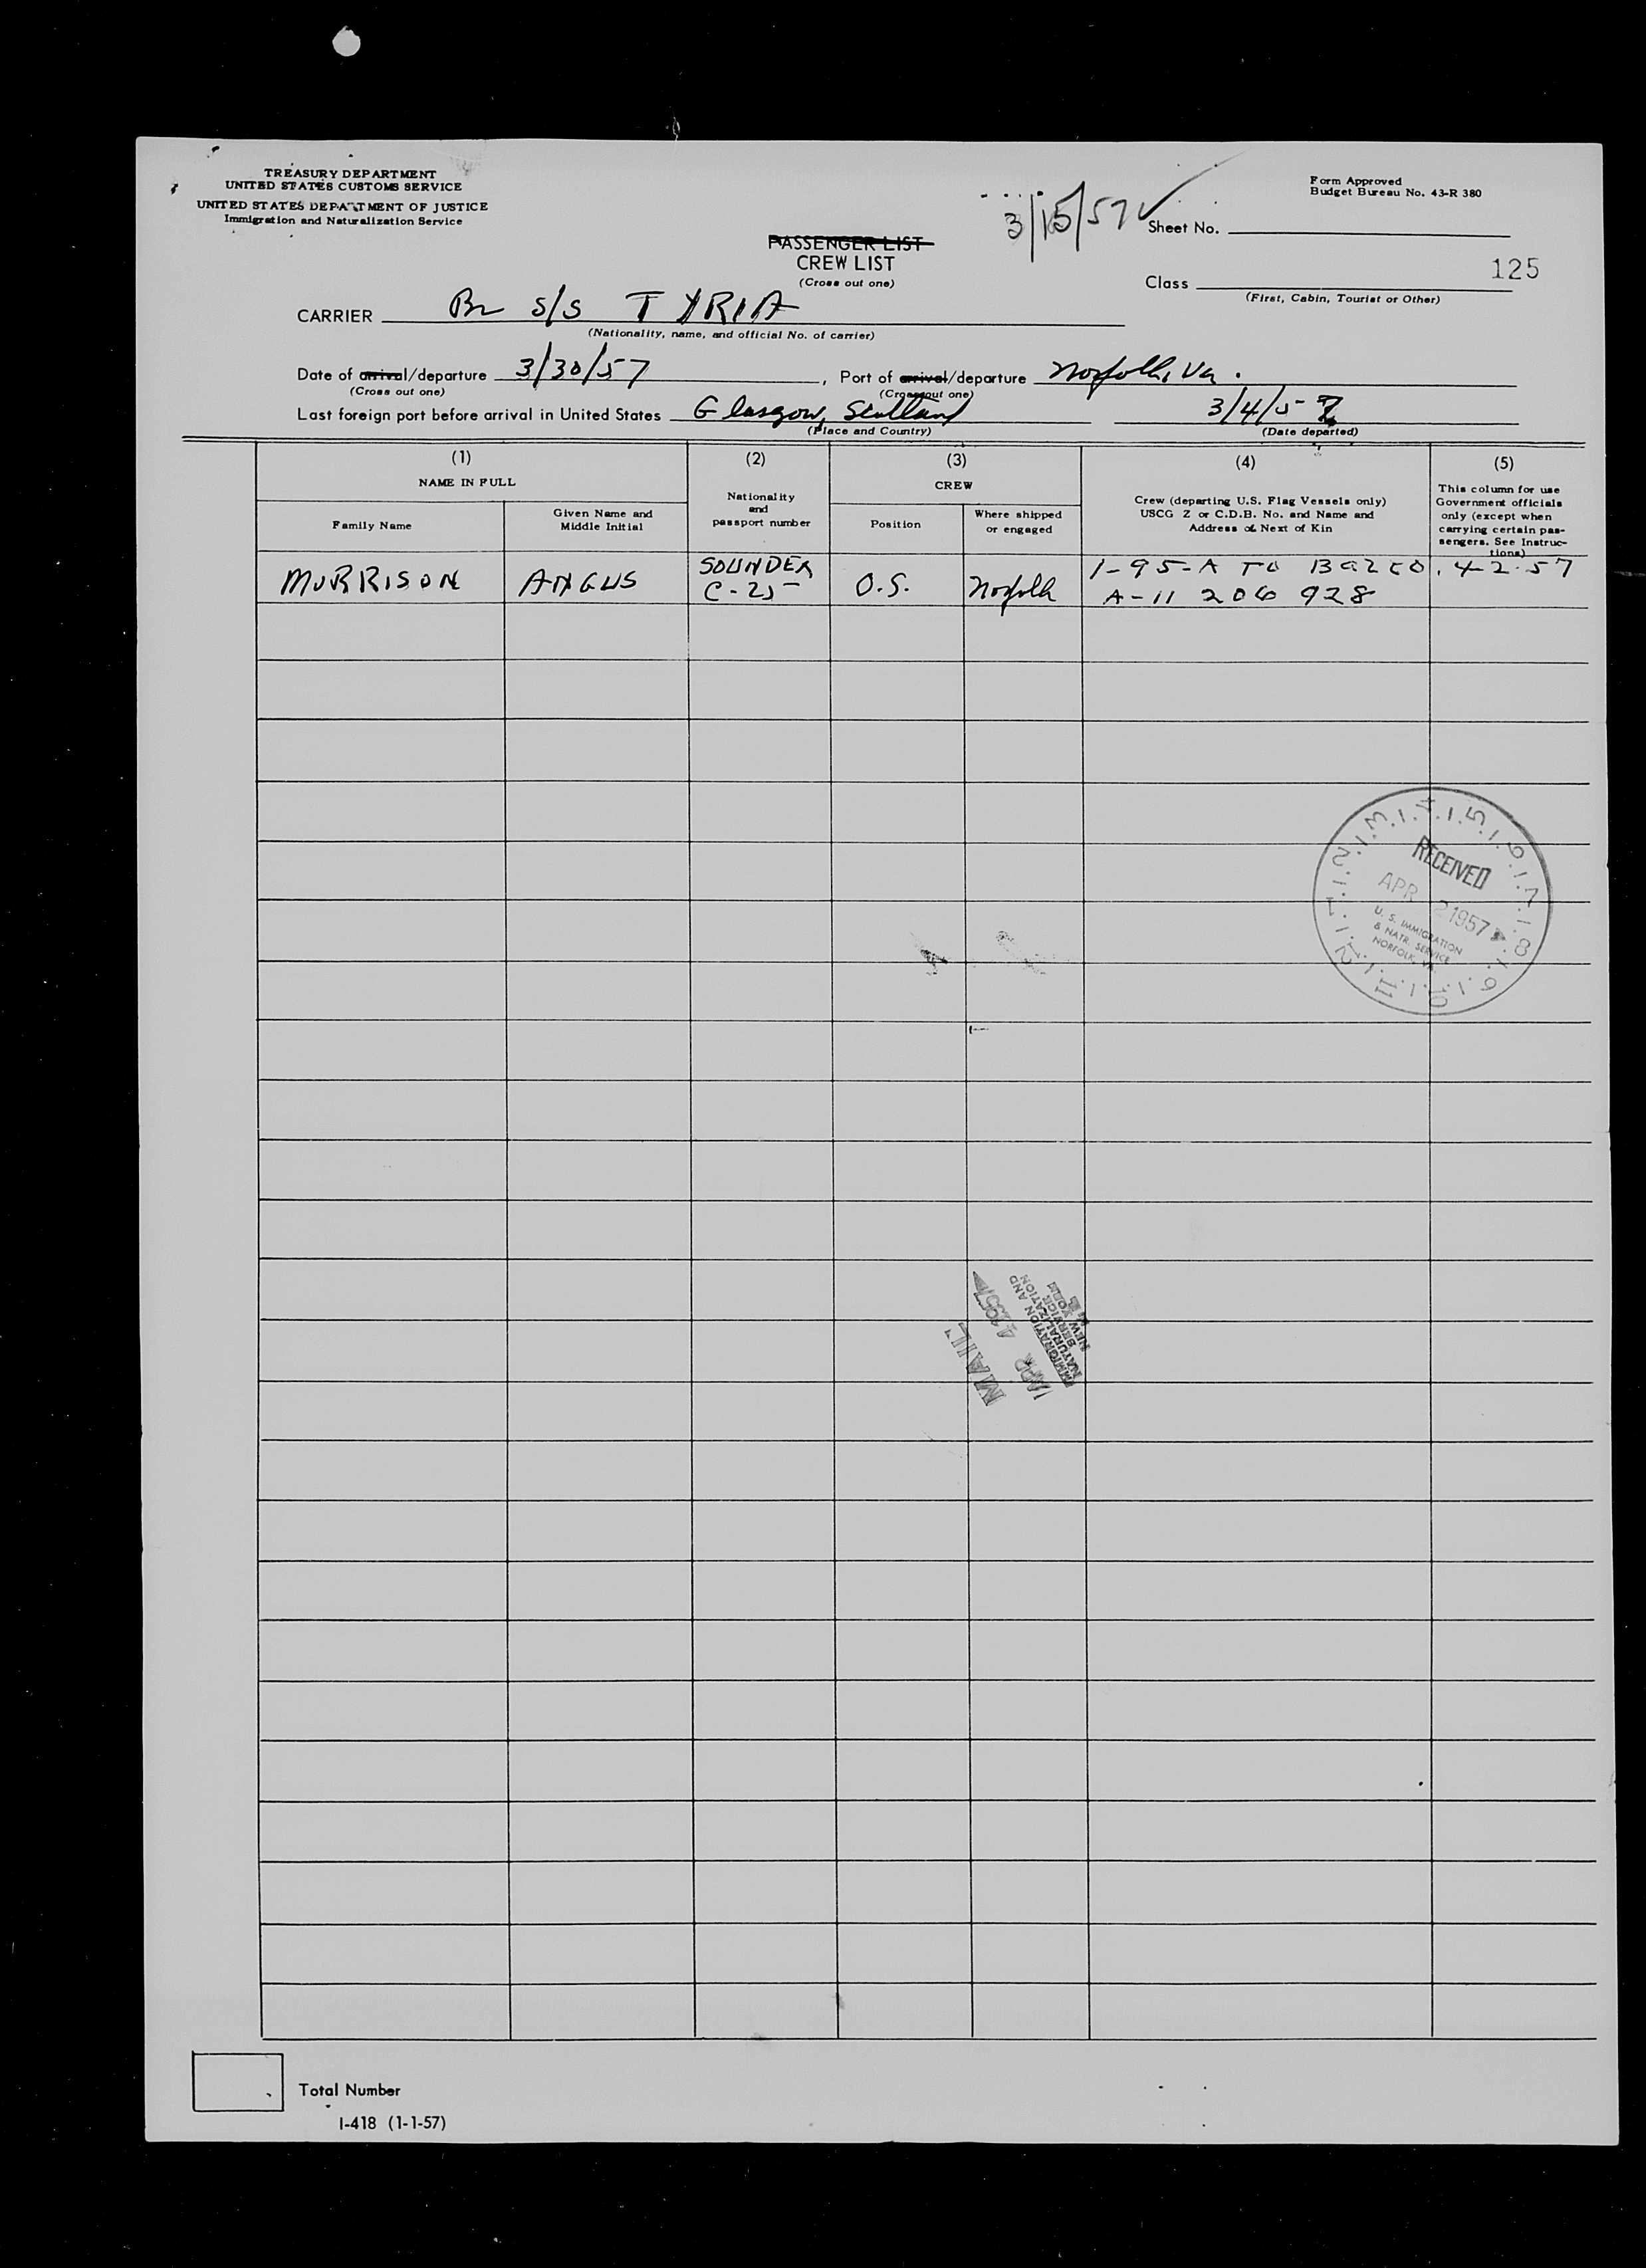 TREASURY DEPARTMENT
UNITED STATES CUSTOMS SERVICE
UNITED STATES DEPARTMENT OF JUSTICE
Immigration and Naturalization Service
Form Approved
Budget Bureau No. 43-R 380
3/15/57
Sheet No.
PASSENGER LIST
CREW LIST
(Cross out one)
125
Class
(First, Cabin, Tourist or Other)
CARRIER Br S/S TYRIA
(Nationality, name, and official No. of carrier)
Date of arrival/departure 3/30/57, Port of arrival/departure Norfolk, Va.
(Cross out one) (Cross out one)
Last foreign port before arrival in United States Glasgow, Scotland 3/4/57
(Place and Country) (Date departed)
(1) (2) (3) (4) (5)
NAME IN FULL
Family Name
Given Name and
Middle Initial
Nationality
and
passport number
CREW
Position
Where shipped
or engaged
Crew (departing U.S. Flag Vessels only)
USCG Z or C.D.B. No. and Name and
Address of Next of Kin
This column for use
Government officials
only (except when
carrying certain pas-
sengers. See Instruc-
tions)
MORRISON ANGUS C-25 O.S. Norfolk 1-95-A TO 4-2-57
A-11 206 928
RECEIVED
APR 2 1957
U. S. IMMIGRATION
& NATR. SERVICE
NORFOLK, VA.
MAIL
APR 4 1957
IMMIGRATION AND
NATURALIZATION
SERVICE
NEW YORK
Total Number
I-418 (1-1-57)